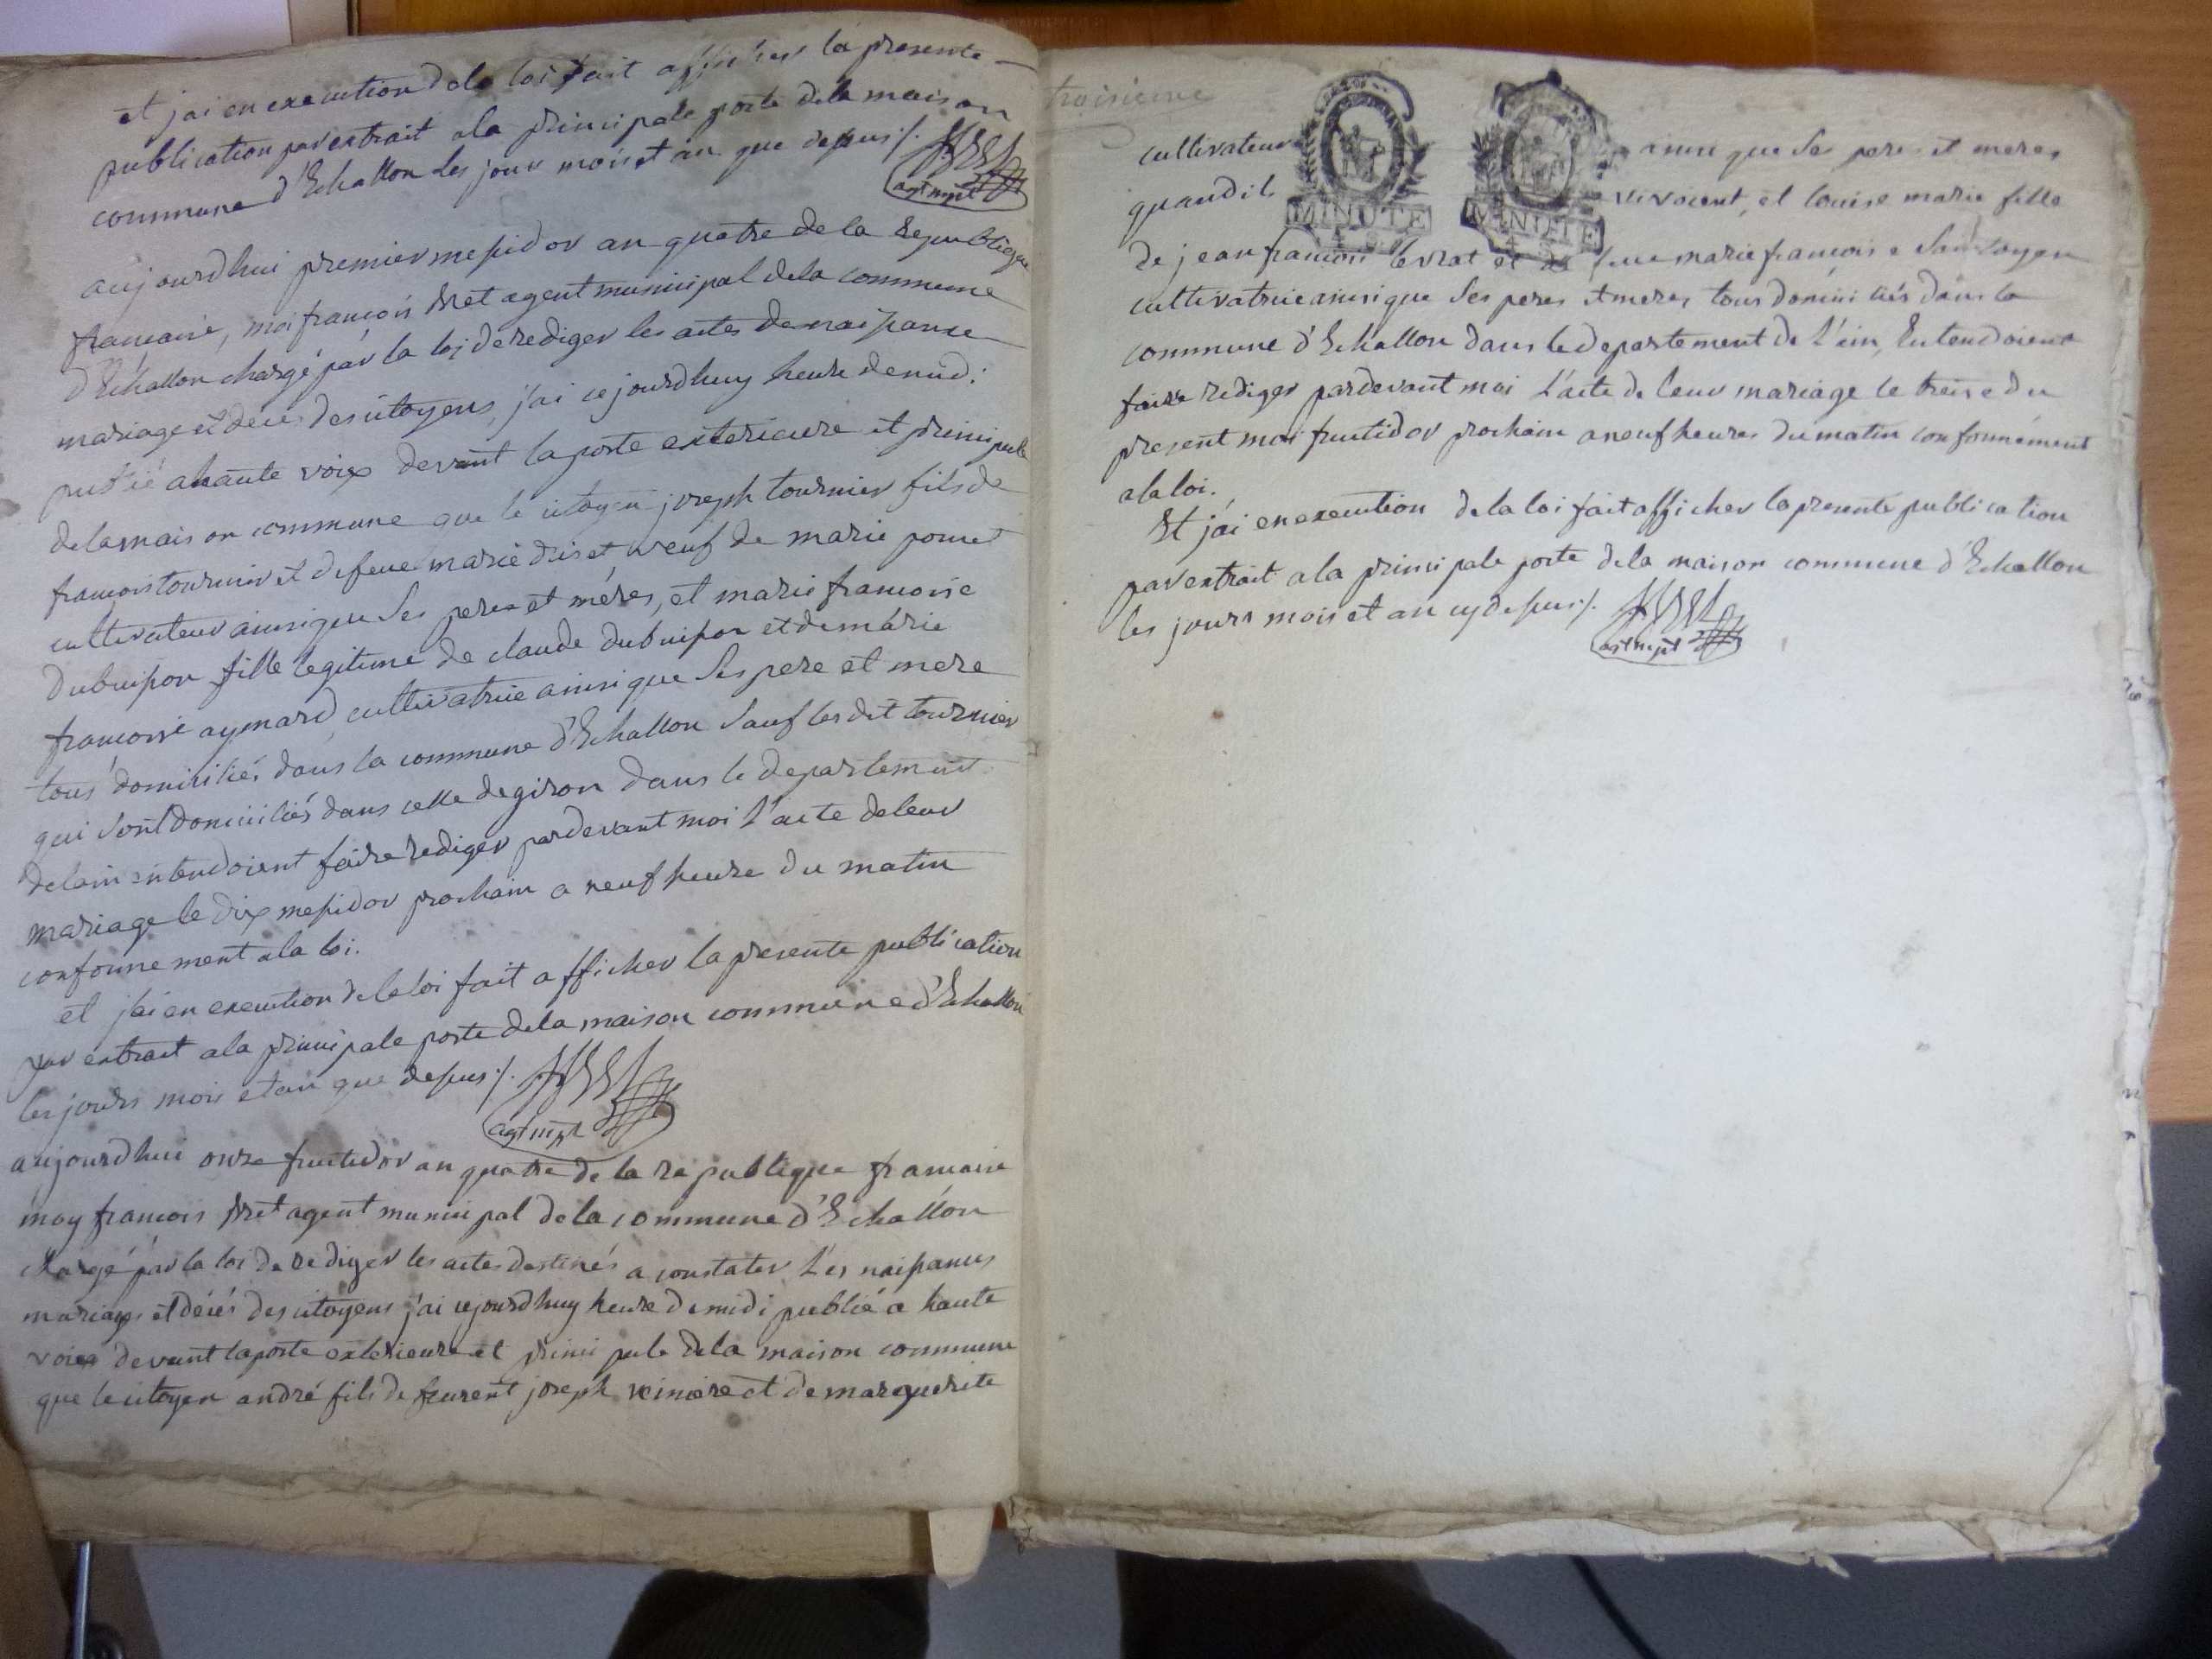 et jai en execution de la loi fait afficher la presente
publication par extrait a la principale porte de la maison
commune d'Echallon les jour mois et an que dessus ./.
agt mpl
aujourdhui premier messidor an quatre de la republique
francaise, moi francois agent municipal de la commune
d'Echallon chargé par la loi de rediger les actes de naissance
mariage et decés des citoyens, j'ai cejourdhuy heure de midi
publié a haute voix devant la porte exterieure et principale
de la maison commune que le citoyen joseph tournier fils de
francois tournier et de feue marie veuf de marie poncet
cultivateur ainsi que ses peres et méres, et marie francoise
dubuisson fille legitime de claude dubuisson et de marie
francoise aymard, cultivatrice ainsi que ses pere et mere
tous domiciliés dans la commune d'Echallon sauf lesdit tournier
qui sont domiciliés dans celle de giron dans le departement
de lain entendoient faire rediger pardevant moi l'acte de leur
mariage le dix messidor prochain a neuf heure du matin
conformement a la loi.
et jai en execution de la loi fait afficher la presente publication
par extrait a la principale porte de la maison commune d'Echallon
les jours mois et an que dessus ./.
agt mpl
aujourdhui onze fructidor an quatre de la republique francaise
moy francois agent municipal de la commune d'Echallon
chargé par la loi de rediger les actes destinés a constater les naissances
mariages et décés des citoyens j'ai cejourdhuy heure de midi publié a haute
voix devant la porte exterieure et principale de la maison commune
que le citoyen andré fils de joseph et de marguerite
troisieme
cultivateur ainsi que ses peres et meres
quand ils vivoient, et louise marie fille
MINUTE MINUTE
de jean francois levrat et de feue marie francoise
cultivatrice ainsi que ses peres et meres, tous domiciliés dans la
commune d'Echallon dans le departement de l'ain, Entendoient
faire rediger pardevant moi l'acte de leur mariage le treise du
present mois fructidor prochain a neuf heures du matin conformément
a la loi.
Et j'ai en execution de la loi fait afficher la presente publication
par extrait a la principale porte de la maison commune d'Echallon
les jours mois et an cy dessus ./.
agt mpl